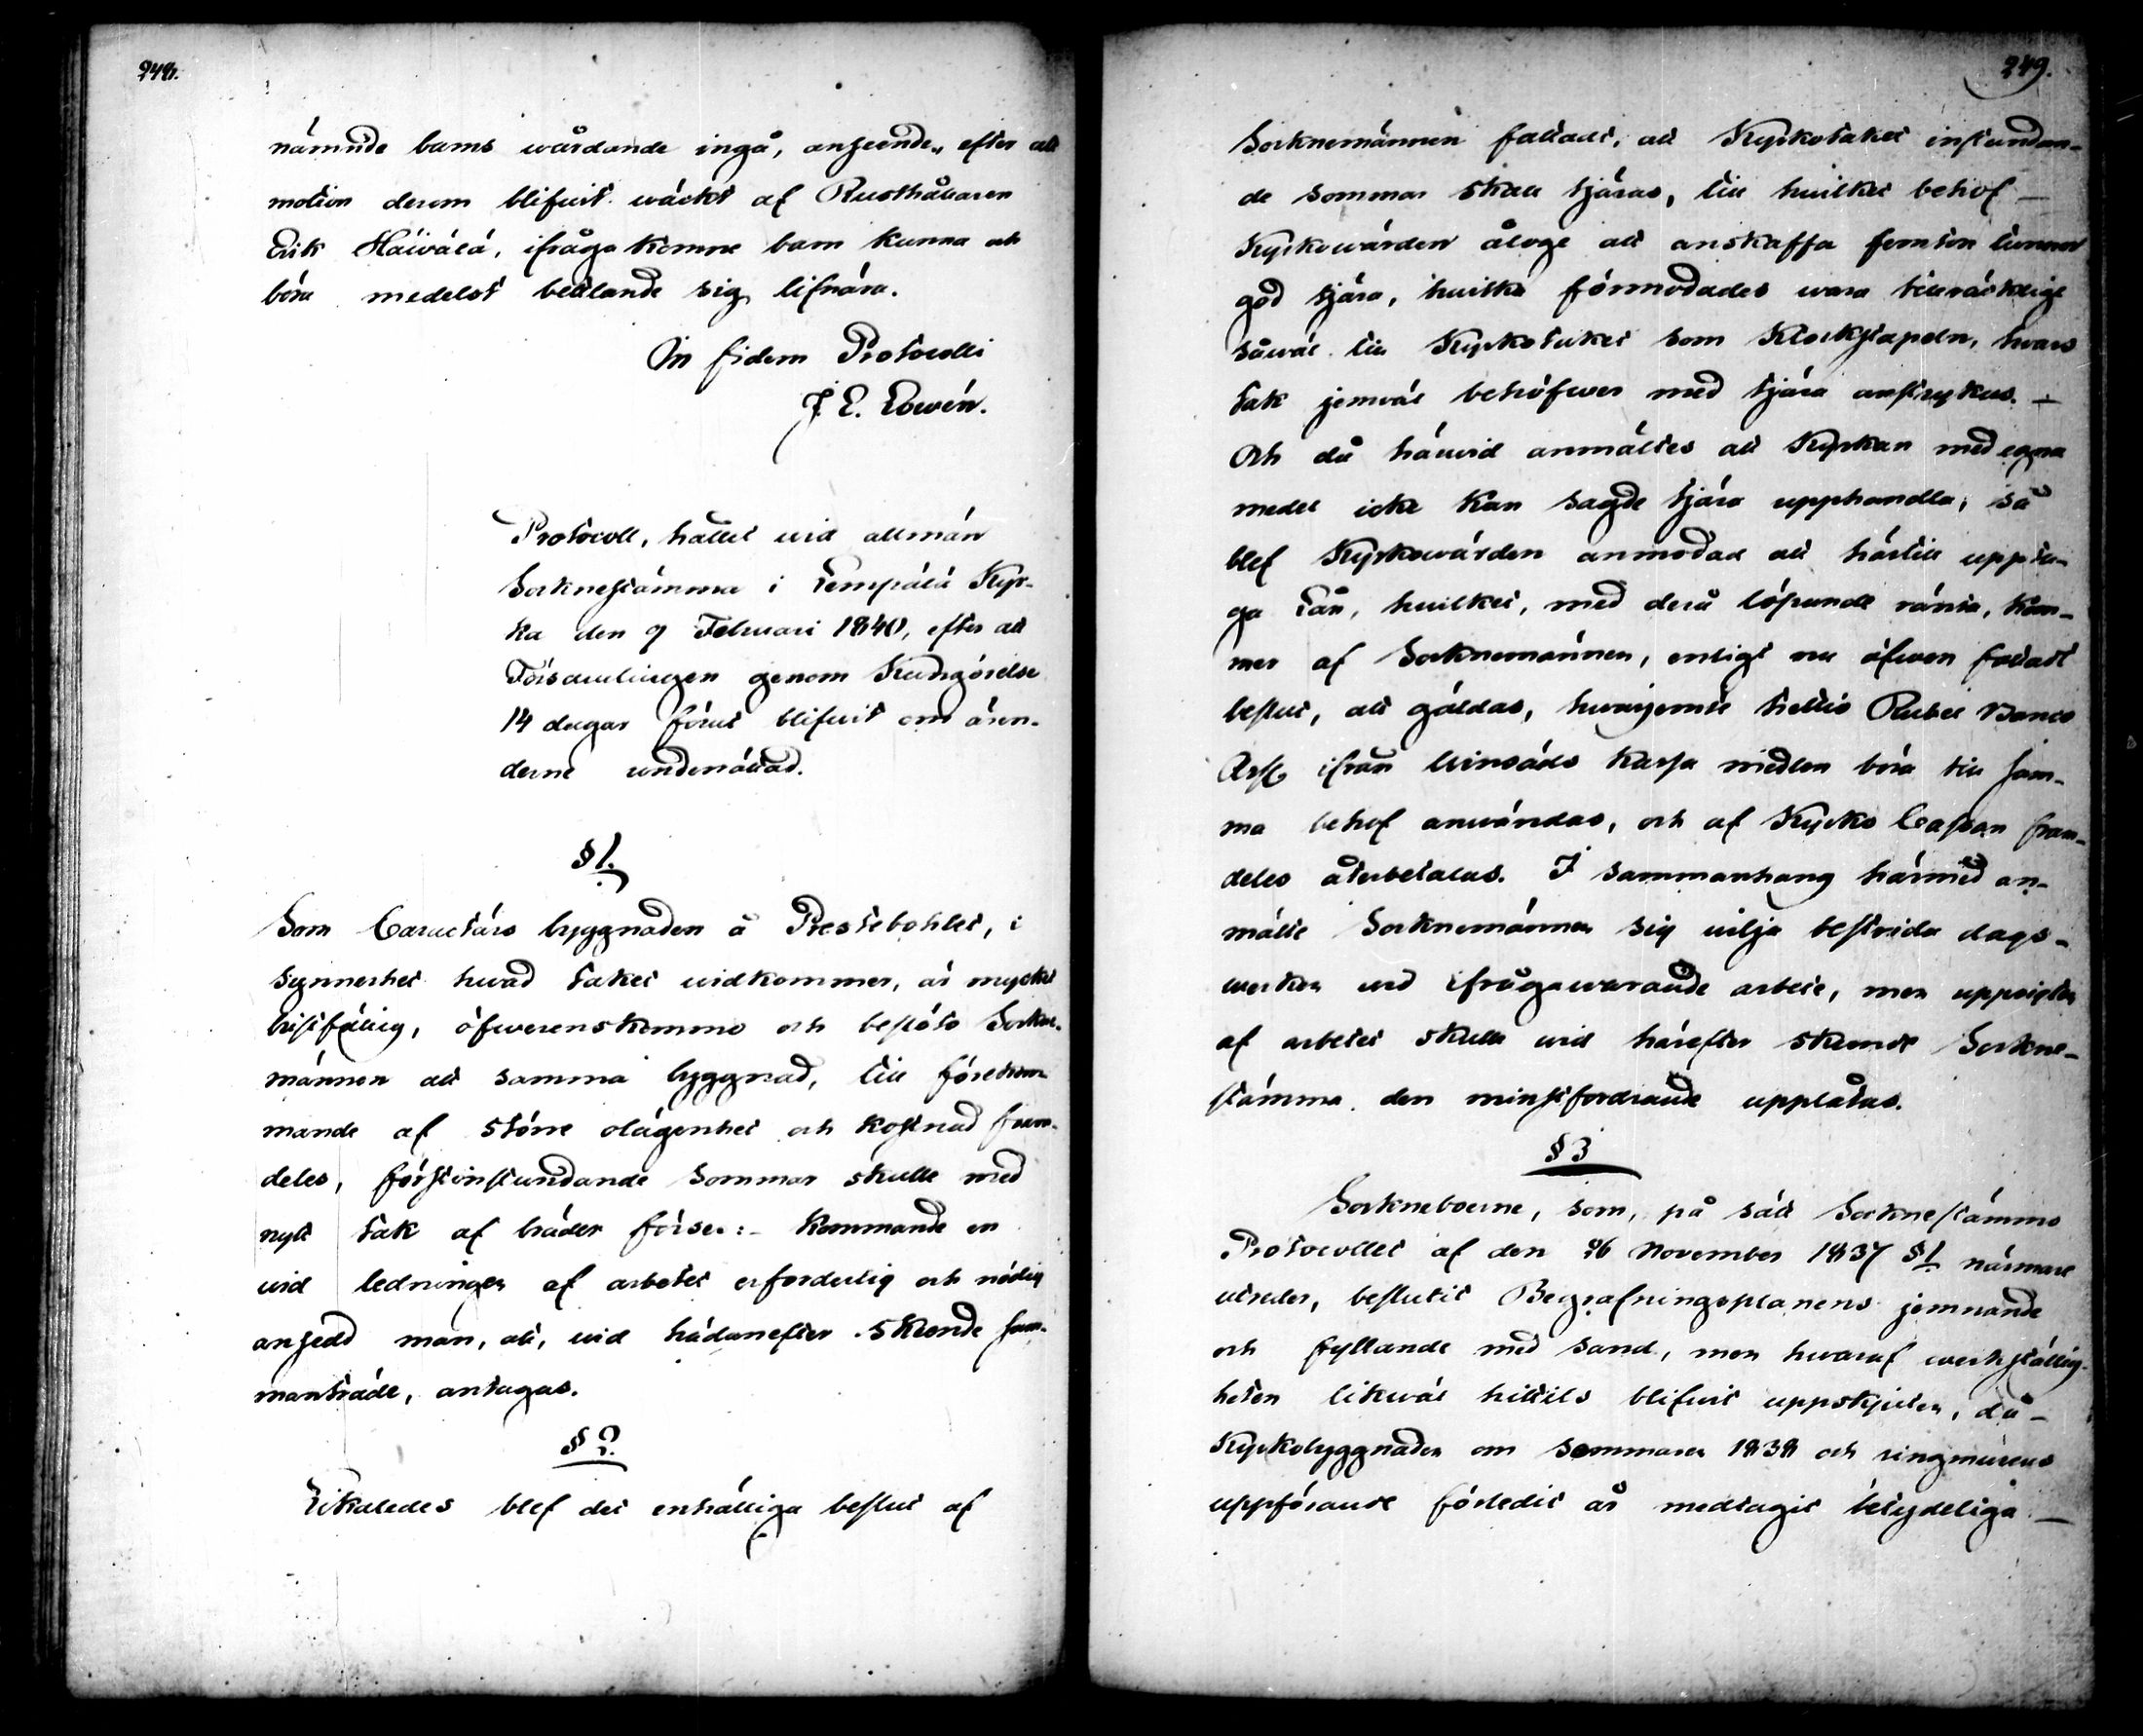 248.
nämnde barns wårdande ingå, anseende, efter att
motion derom blifwit wäckt af Rusthållaren
Erik Häiwälä, ifråga komne barn kunna och
böra medelst betlande sig lifnära.
In fidem Protocolli
J. E. Lowén.
Protocoll, hållet wid allmän
Socknestämma i Lempälä Kyr-
ka den 9 Februari 1840, efter att
Församlingen genom Kundgörelse
14 dagar förut blifwit om ären-
derne underrättad.
§ 1.
Som Caractärs byggnaden å Prestebohlet, i
synnerhet hwad taket widkommer, är mycket
bristfällig, öfwerenskommo och beslöto Sockne-
männen att samma byggnad, till förekom-
mande af större olägenhet och kostnad fram-
deles, förstinstundande Sommar skulle med
nytt tak af bräder förses: - kommande en
wid ledningen af arbetet erforderlig och nödig
ansedd man, att, wid hädanefter skeende sam-
manträde, antagas.
§ 2.
Likaledes blef det enhälliga beslut af
249.
Socknemännen fattadt, att Kyrkotaket instundan-
de sommar skall tjäras, till hwilket behof —
Kyrkowärden ålåge att anskaffa femton tunnor
god tjära, hwilka förmodades wara tillräcklige
såwäl till Kyrkotaket som Klockstapeln, hwars
tak jemwäl behöfwer med tjära anstrykas. —
Och då härwid anmältes att Kyrkan med egna
medel icke kan sagde tjära upphandla, så
blef Kyrkowärden anmodad att härtill uppta-
ga Lån, hwilket, med derå löpande ränta, kom-
mer af Socknemännen, enligt nu äfwen fattadt
beslut, att gäldas, hwarjemte trettio Rubel Banco
Ass ifrån Utsäds kassa medlen böra till sam-
ma behof användas, och af Kyrko Cassan fram-
deles återbetalas. I sammanhang härmed an-
mälte Socknemännen sig wilja bestrida dags-
werken wid ifrågawarande arbete, men uppsigten
af arbetet skulle wid härefter skeende Sockne-
stämma den minstfordrande upplåtas.
§ 3
Sockneboerne, som, på sätt Socknestämmo
Protocollet af den 26 November 1837 § 1 närmare
utreder, beslutit Begrafningsplanens jemnande
och fyllande med sand, men hwaraf werkställig-
heten likwäl hittils blifwit uppskjuten, då —
Kyrkobyggnaden om sommaren 1838 och ringmurens
uppförande förledit år medtagit betydeliga —